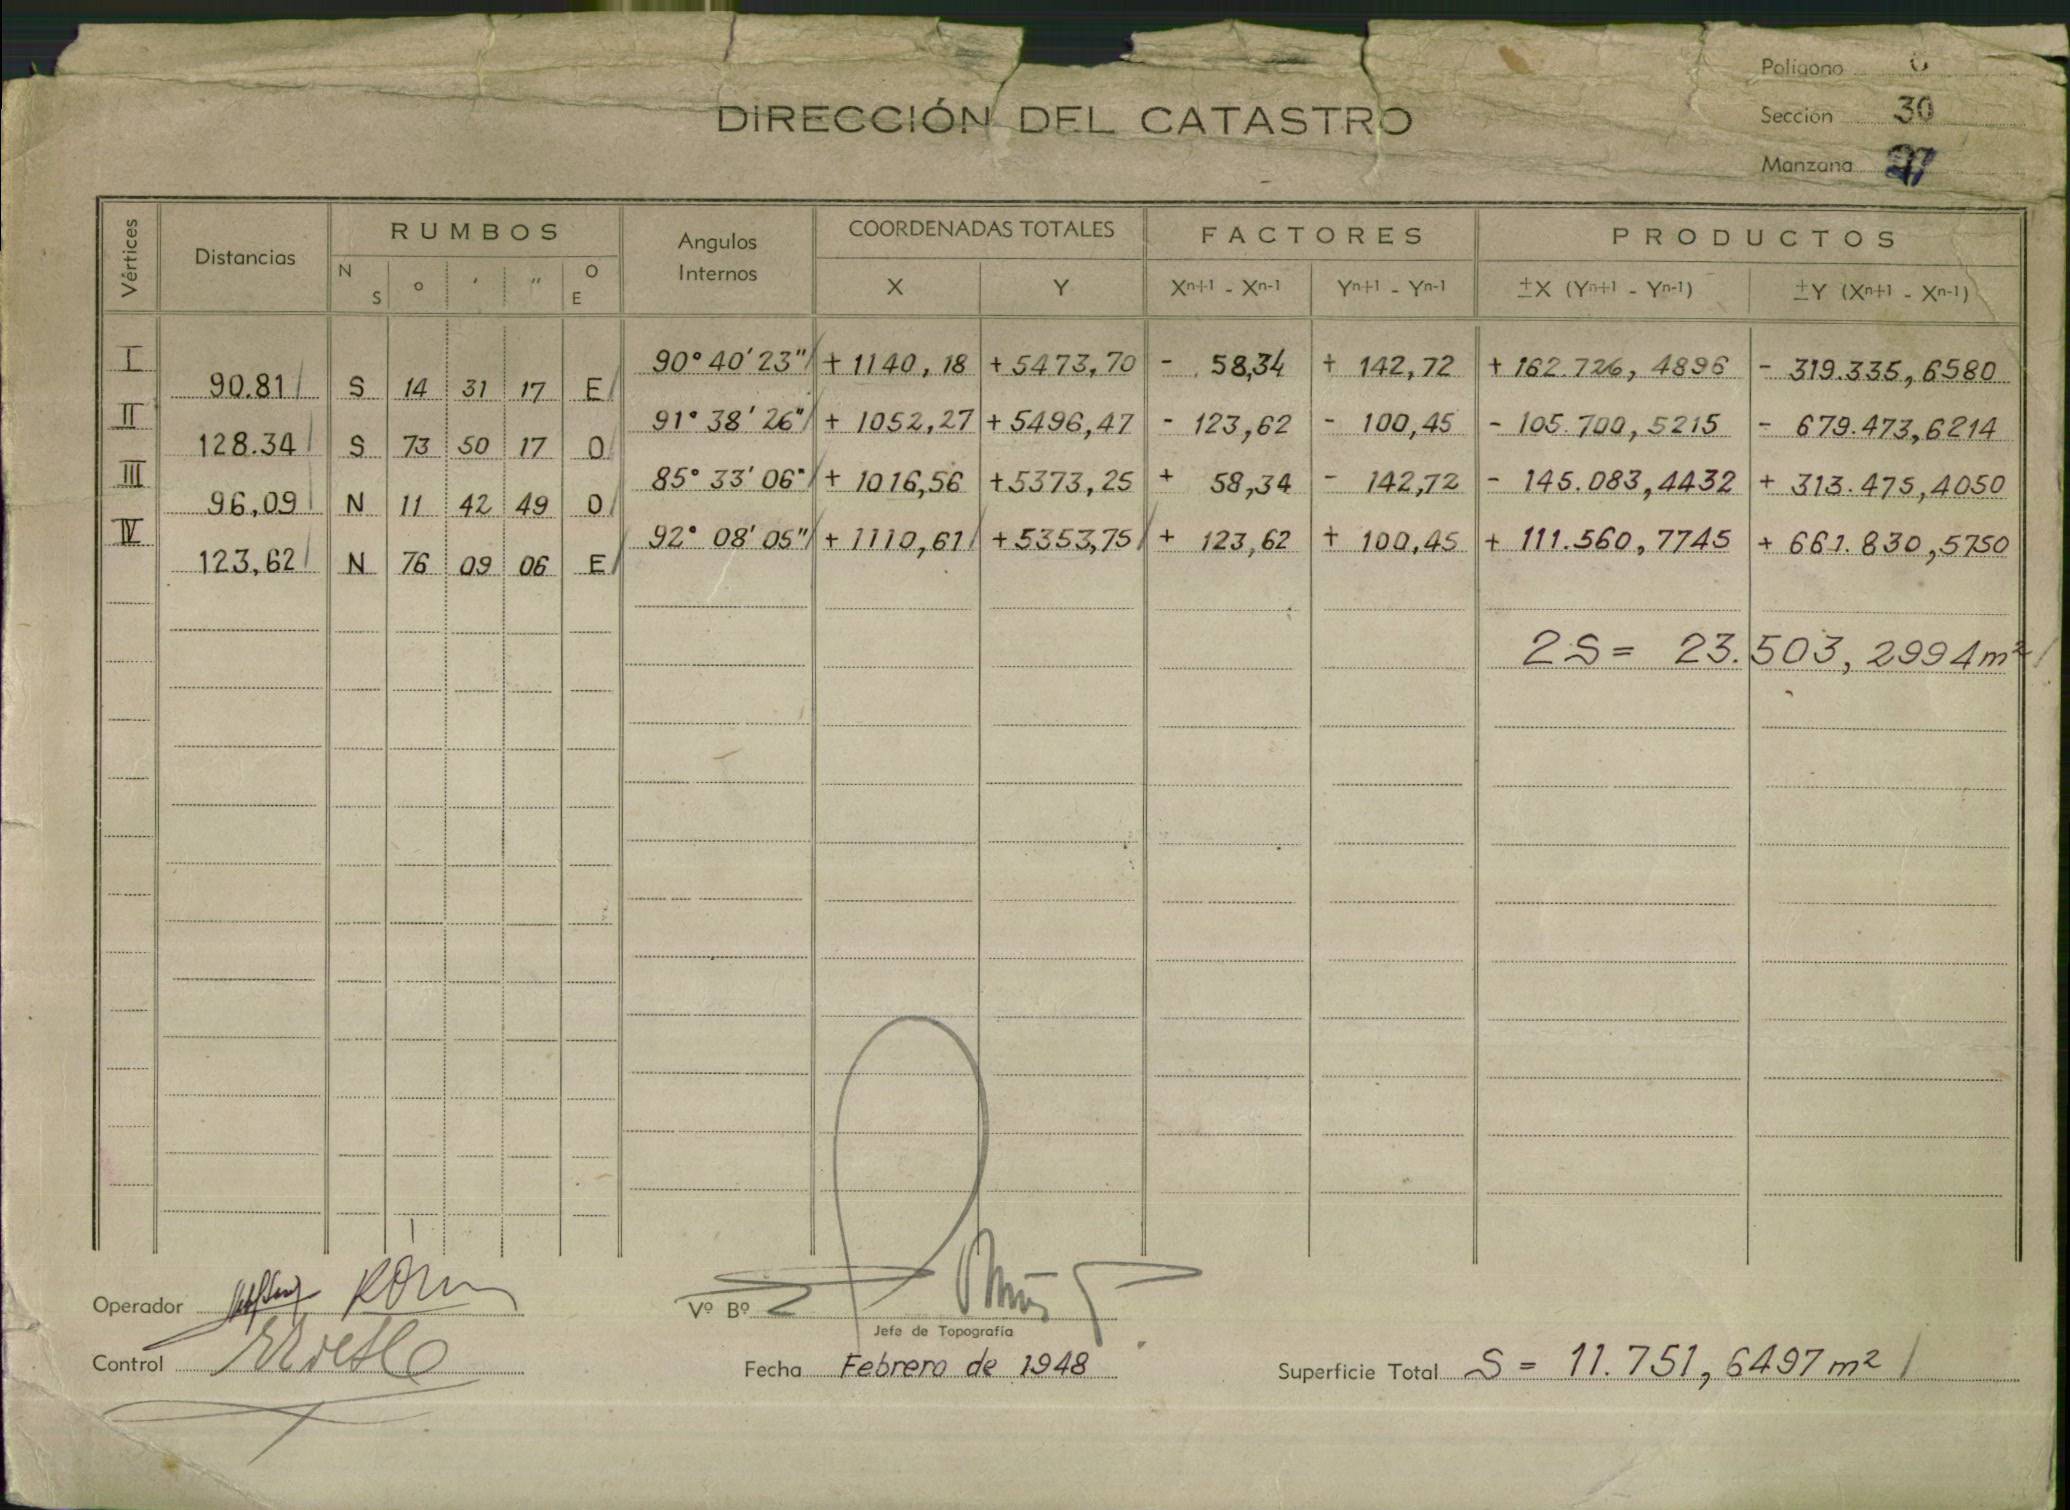 Polígono
DIRECCIÓN DEL CATASTRO
Sección 30
Manzana
Vértices Distancias RUMBOS Angulos Internos COORDENADAS TOTALES FACTORES PRODUCTOS
N S ° ' " O E X Y Xn+1 - Xn-1 Yn+1 - Yn-1 ±X (Yn+1 - Yn-1) ±Y (Xn+1 - Xn-1)
I 90°40'23" +1140,18 +5473,70 - 58,34 + 142,72 +162.726,4896 - 319.335,6580
90.81 S 14 31 17 E
II 91°38'26" + 1052,27 +5496,47 - 123,62 - 100,45 - 105.700,5215 - 679.473,6214
128.34 S 73 50 17 O
III 85°33'06" + 1016,56 +5373,25 + 58,34 - 142,72 - 145.083,4432 + 313.475,4050
96,09 N 11 42 49 O
IV 92°08'05" + 1110,61 +5353,75 + 123,62 + 100,45 + 111.560,7745 + 661.830,5750
123,62 N 76 09 06 E
2S = 23.503,2994 m²
Operador
Vº Bº
Jefe de Topografía
Control
Fecha Febrero de 1948
Superficie Total S = 11.751,6497 m²